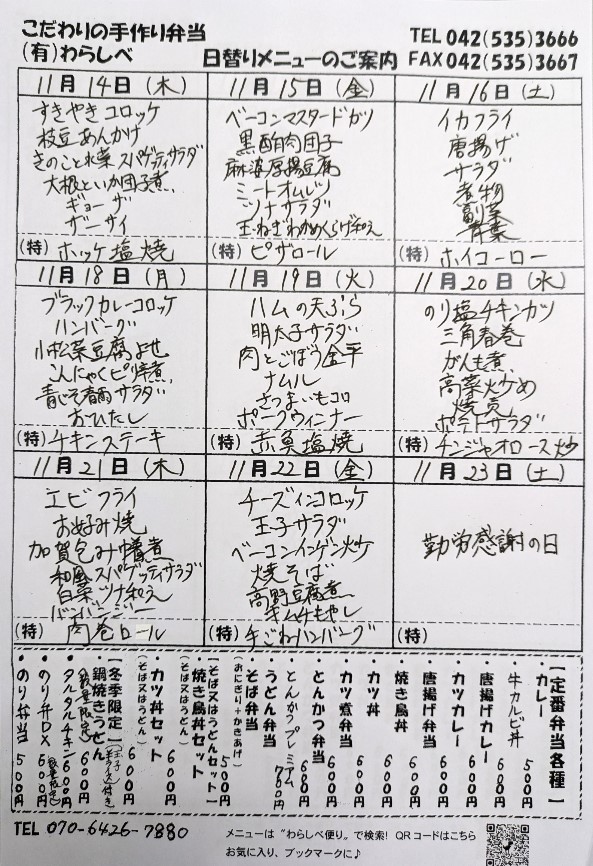 こだわりの手作り弁当
(有)わらしべ
日替りメニューのご案内
TEL 042(535)3666
FAX 042(535)3667
11月14日(木)
すきやきコロッケ
枝豆あんかけ
きのこと水菜スパゲッティサラダ
大根といか団子煮
ギョーザ
ザーサイ
(特)ホッケ塩焼
11月15日(金)
ベーコンマスタードカツ
黒酢肉団子
麻婆厚揚豆腐
ミートオムレツ
ツナサラダ
玉ねぎわかめくらげ和え
(特)ピザロール
11月16日(土)
イカフライ
唐揚げ
サラダ
煮物
副菜
青菜
(特)ホイコーロー
11月18日(月)
ブラックカレーコロッケ
ハンバーグ
小松菜豆腐よせ
こんにゃくピリ辛煮
青じそ春雨サラダ
おひたし
(特)チキンステーキ
11月19日(火)
ハムの天ぷら
明太子サラダ
肉とごぼう金平
ナムル
さつまいもコロ
ポークウィンナー
(特)赤魚塩焼
11月20日(水)
のり塩チキンカツ
三角春巻
がんも煮
高菜炒め
焼売
ポテトサラダ
(特)チンジャオロース炒
11月21日(木)
エビフライ
お好み焼
加賀包み煮
和風スパゲッティサラダ
白菜ツナ和え
バンバンジー
(特)肉巻ロール
11月22日(金)
チーズインコロッケ
玉子サラダ
ベーコンインゲン炒ケ
焼そば
高野豆腐煮
キムチもやし
(特)手ごねハンバーグ
11月23日(土)
勤労感謝の日
(特)
【定番弁当各種】
・カレー 500円
・牛カルビ丼
・唐揚げカレー 600円
・カツカレー 600円
・唐揚げ弁当 600円
・焼き鳥丼 600円
・カツ丼 600円
・カツ煮弁当 600円
・とんかつ弁当 600円
・とんかつプレミアム 700円
・うどん弁当
・そば弁当
(おにぎり+かきあげ) 500円
【そば又はうどんセット】
・焼き鳥丼セット
(そば又はうどん) 600円
・カツ丼セット
(そば又はうどん) 600円
【冬季限定】
・鍋焼きうどん
(数量限定) 600円
・タルタルチキン 600円
・のり弁DX 600円
(数量限定)
・のり弁当 500円
TEL 070-6426-7880
メニューは "わらしべ便り" で検索! QRコードはこちら
お気に入り、ブックマークに♪